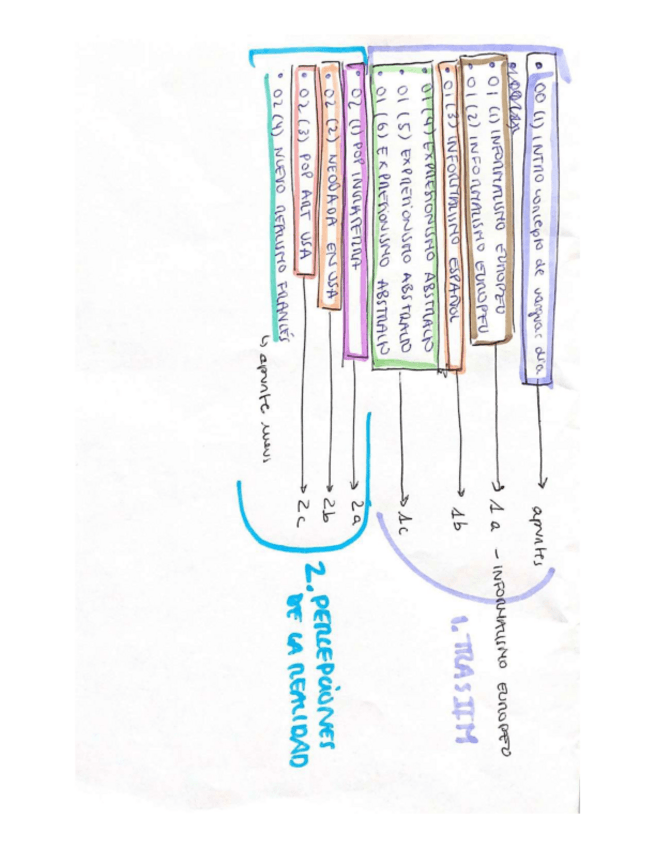 00 (1) INTRO concepto de vanguardia → apuntes
01 (1) INFORMALISMO EUROPEO
01 (2) INFORMALISMO EUROPEO → 1a - INFORMALISMO EUROPEO
01 (3) INFORMALISMO ESPAÑOL → 1b
01 (4) EXPRESIONISMO ABSTRACTO
01 (5) EXPRESIONISMO ABSTRACTO → 1c
01 (6) EXPRESIONISMO ABSTRACTO
1. TRAS IIGM
02 (1) POP INGLATERRA → 2a
02 (2) NEODADA EN USA → 2b
02 (3) POP ART USA → 2c
02 (4) NUEVO REALISMO FRANCÉS
↳ apunte
2. PERCEPCIONES
DE LA REALIDAD